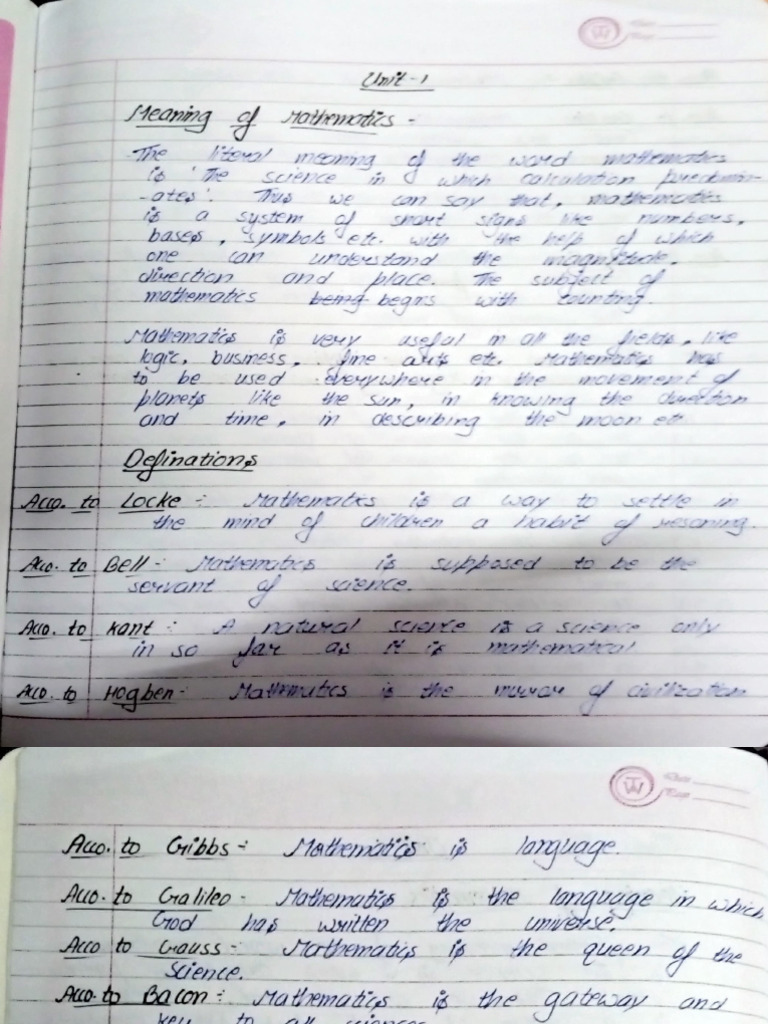 Unit-1
Meaning of Mathematics -
The literal meaning of the word mathematics
is 'The science in which calculation predomin-
-ates'. Thus we can say that, mathematics
is a system of short signs like numbers,
bases, symbols etc. with the help of which
one can understand the magnitude,
direction and place. The subject of
mathematics being begins with counting.
Mathematics is very useful in all the fields, like
logic, business, fine arts etc. Mathematics has
to be used everywhere in the movement of
planets like the sun, in knowing the direction
and time, in describing the moon etc
Definations
Acco. to Locke :- Mathematics is a way to settle in
the mind of children a habit of resoning.
Acco. to Bell :- Mathematics is supposed to be the
servant of science.
Acco. to Kant :- A natural science is a science only
in so far as it is mathematical
Acco. to Hogben :- Mathematics is the mirror of civilization
Acco. to Gibbs :- Mathematics is language.
Acco. to Galileo - Mathematics is the language in which
God has written the universe.
Acco to Gauss :- Mathematics is the queen of the
Science.
Acco. to Bacon :- Mathematics is the gateway and
key to all sciences